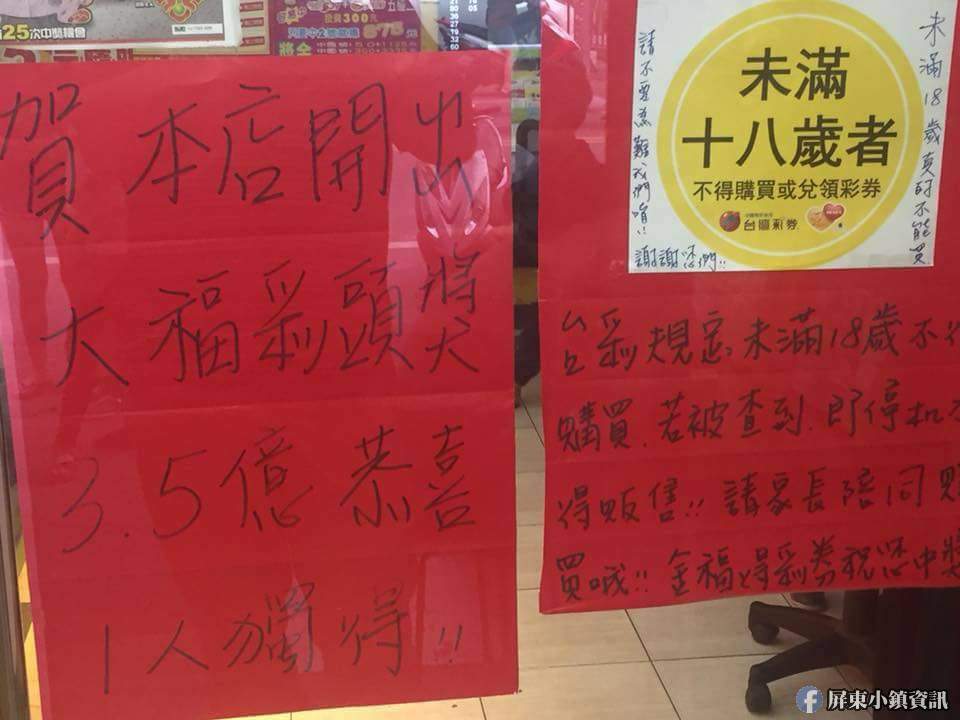 25次中獎機會
投資300元
賀本店開出
大福彩頭獎
3.5億恭喜
1人獨得!!
未滿
十八歲者
不得購買或兌領彩券
台灣彩券
未滿18歲真的不能買
請不要為難我們唷!!
謝謝您們!!
台彩規定未滿18歲不得
購買.若被查到.即停机不
得販售!!請家長陪同購
買哦!!金福得彩券祝您中獎
屏東小鎮資訊